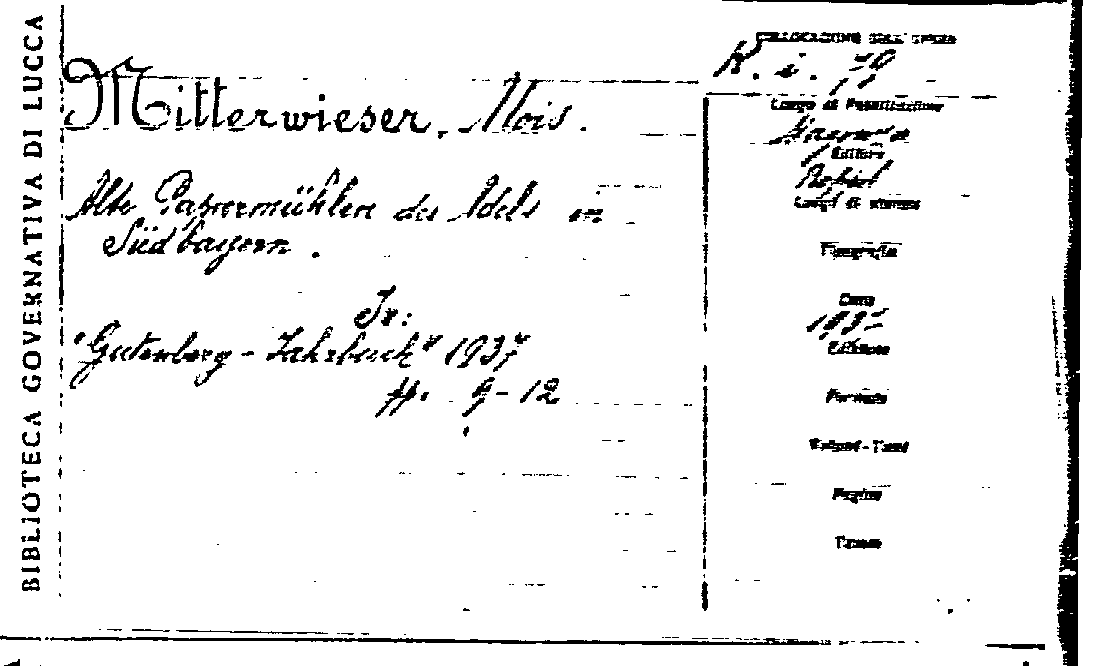 BIBLIOTECA GOVERNATIVA DI LUCCA
Mitterwieser, Alois.
Alte Papiermühlen des Adels in
Südbayern.
In:
"Gutenberg - Jahrbuch" 1937
pp. 9-12
COLLOCAZIONE DELL'OPERA
K. i. 79
Luogo di Pubblicazione
Editore
Luogo di stampa
Tipografia
Data
193
Edizione
Formato
Volumi - Tomi
Pagine
Tavole